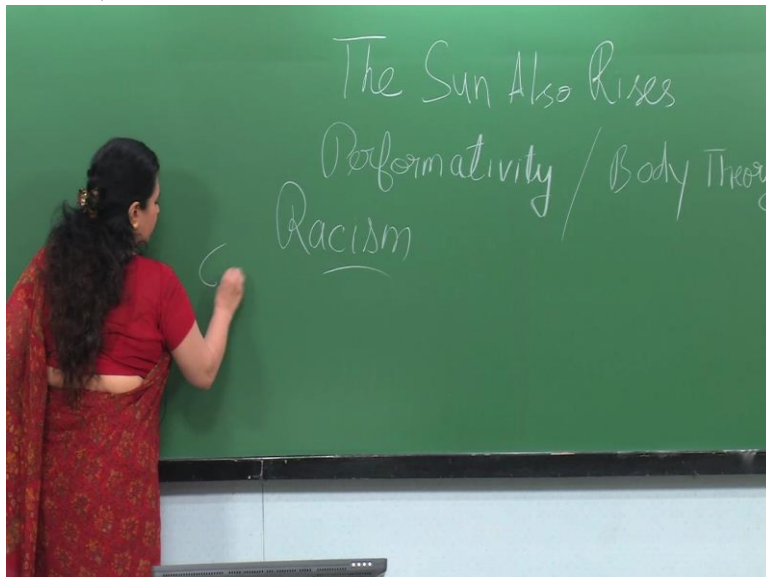 The Sun Also Rises
Performativity / Body Theory
Racism